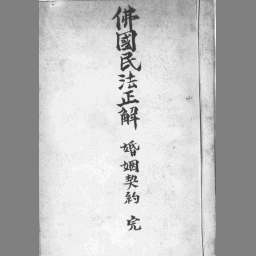 佛國民法正解
婚姻契約 完